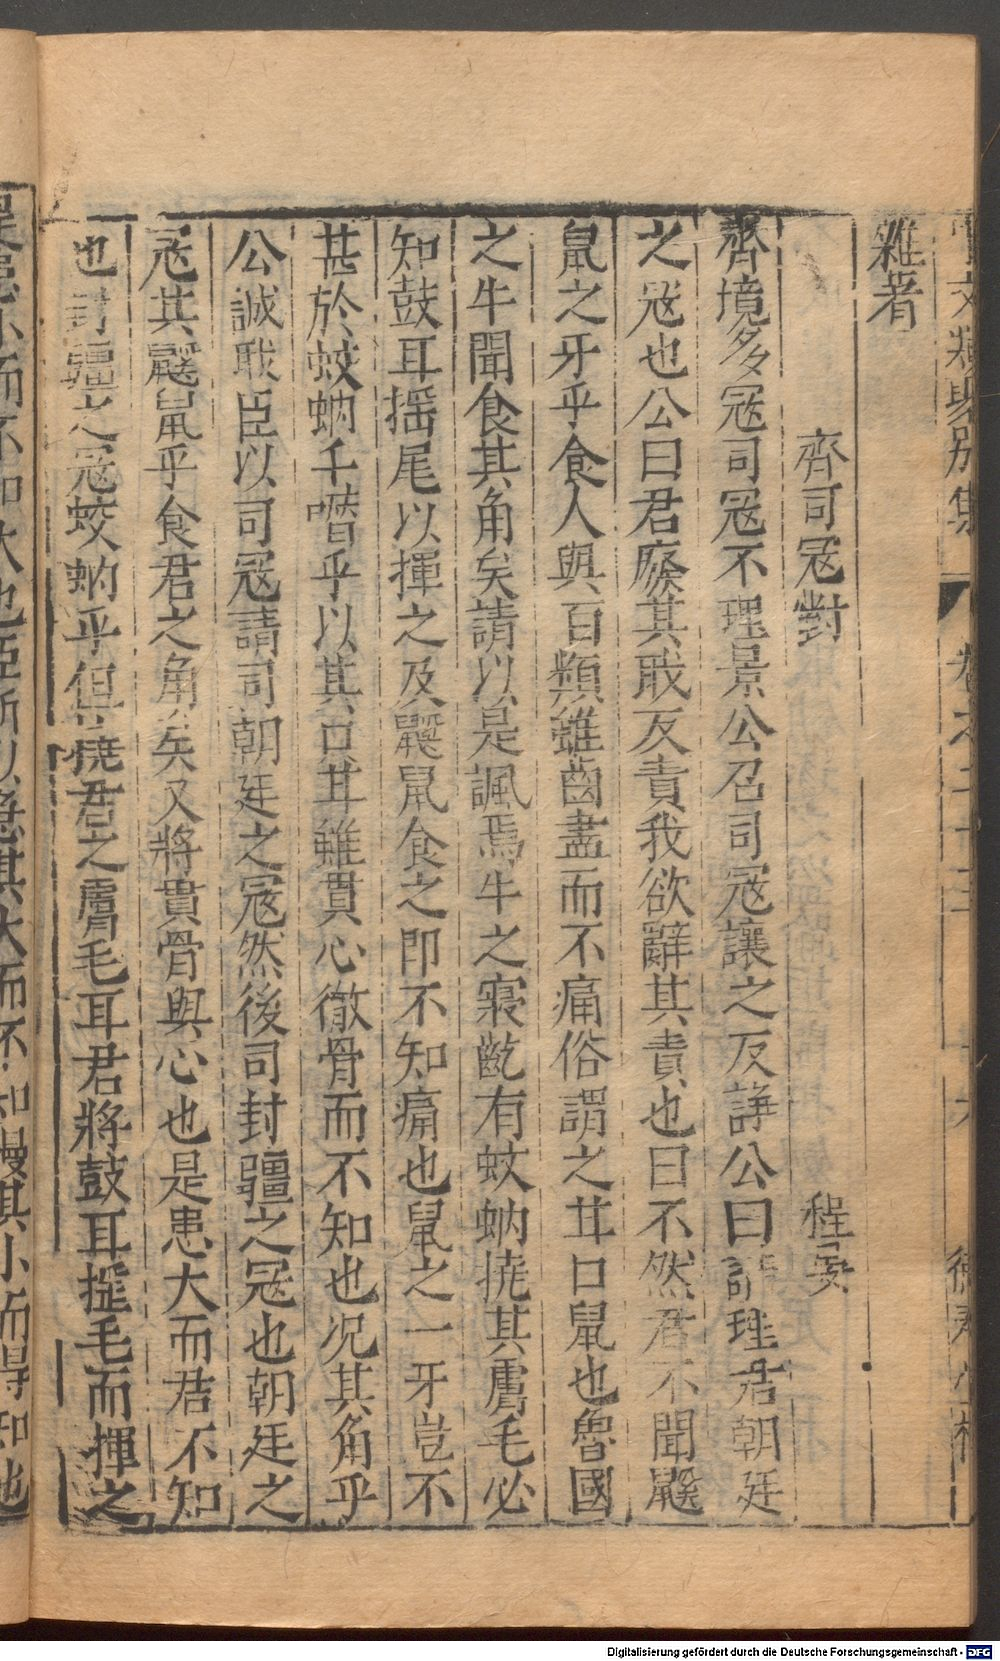 雜著
齊司冦對 程晏
齊境多冦司冦不理景公召司冦讓之反諍公曰請理君朝廷
之冦也公曰君廢其職反責我欲辭其責也曰不然君不聞鼷
鼠之牙乎食人與百類雖齒盡而不痛俗謂之甘口鼠也魯國
之牛聞食其角矣請以是諷焉牛之寢齕有蚊蚋撓其膚毛必
知鼓耳揺尾以揮之及鼷鼠食之即不知痛也鼠之一牙豈不
甚於蚊蚋千噆乎以其口甘雖貫心徹骨而不知也况其角乎
公誠戢臣以司冦請司朝廷之冦然後司封疆之冦也朝廷之
冦其鼷鼠乎食君之角矣又將貫骨與心也是患大而君不知
也封疆之冦蚊蚋乎但撓君之膚毛耳君將鼓耳搖毛而揮之
是患小而不知大也臣所以急其大而不知慢其小而得知也
卷之二十三
Digitalisierung gefördert durch die Deutsche Forschungsgemeinschaft - DFG